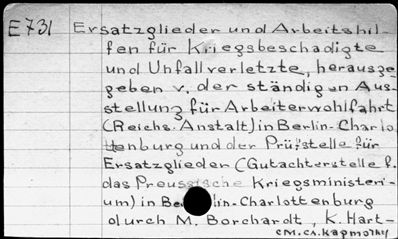 E731 Ersatzglieder und Arbeitshil-
fen für Kriegsbeschadigte
und Unfallverletzte, herausge
geben v. der ständigen Aus-
stellung für Arbeiterwohlfahrt
(Reichs-Anstalt) in Berlin-Charlo
ttenburg und der Prüfstelle für
Ersatzglieder (Gutachterstelle f.
das Preussische Kriegsministeri-
um) in Berlin-Charlottenburg
durch M. Borchardt, K. Hart-
см. сл. карточку